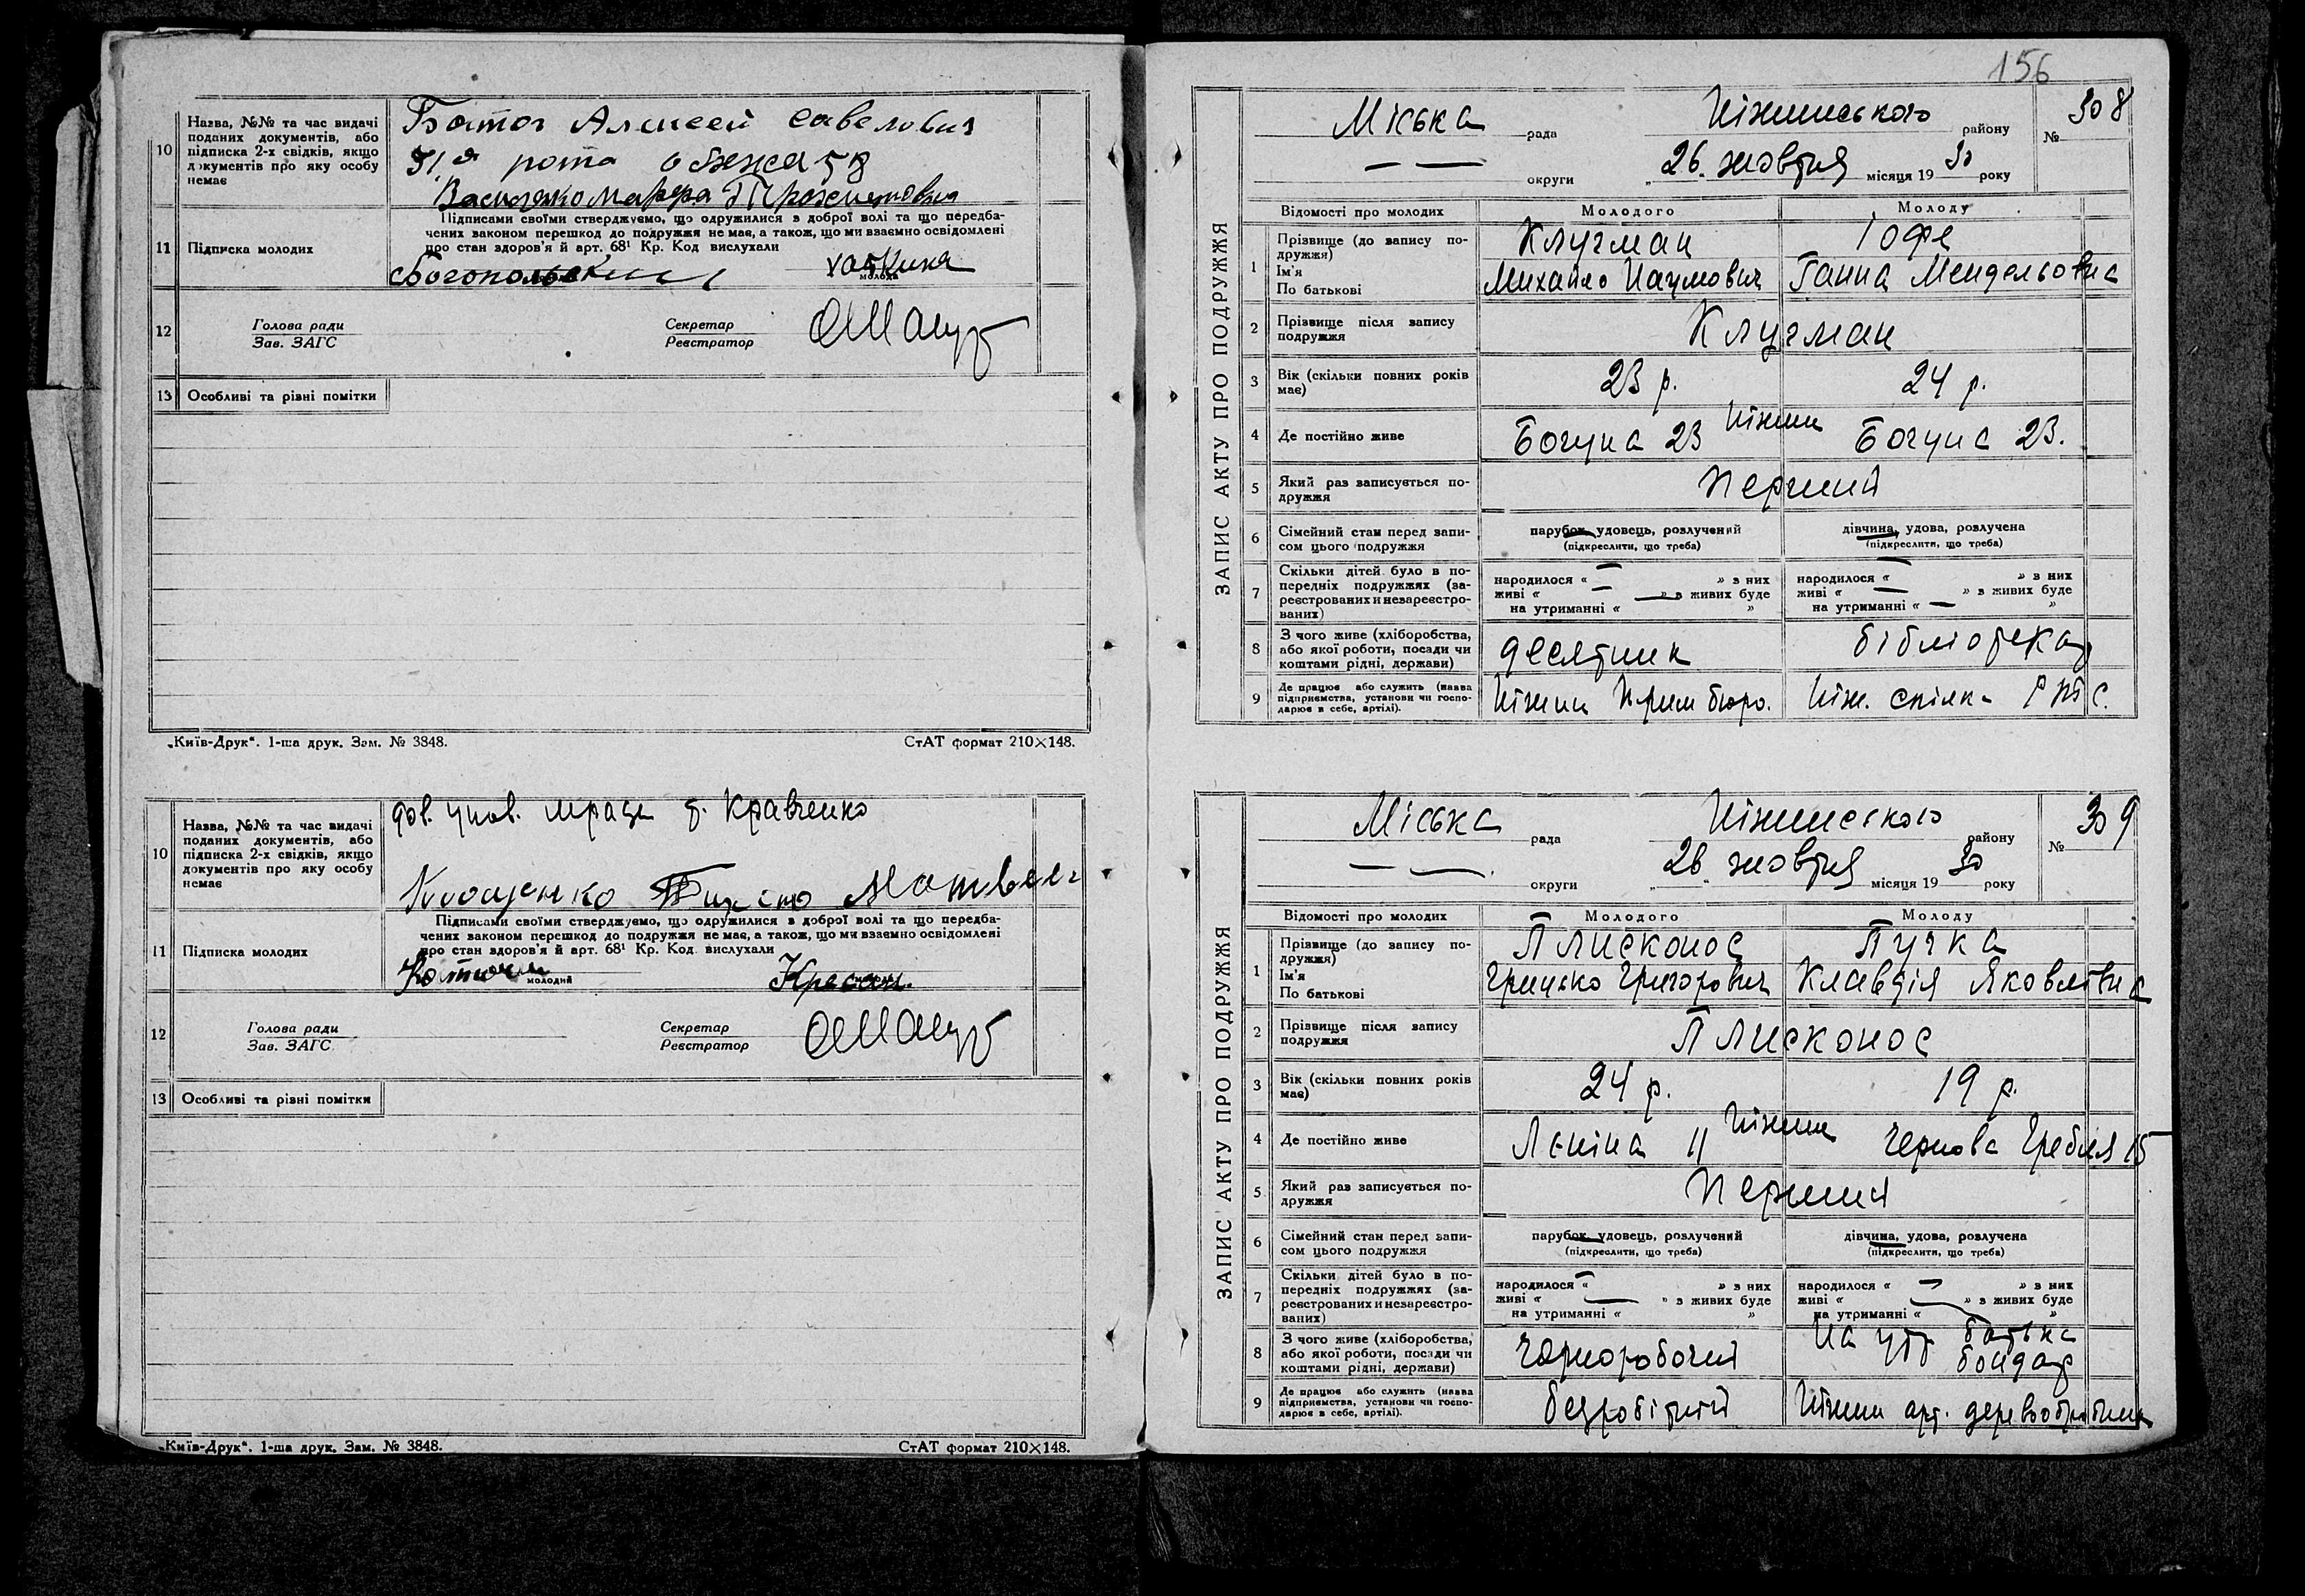 10
Назва, №№ та час видачі
поданих документів, або
підписка 2-х свідків, якщо
документів про яку особу
немає
Алексей Савелович
51 я рота
Підписами своїми стверджуємо, що одружилися з доброї волі та що передба-
чених законом перешкод до подружжя не має, а також, що ми взаємно освідомлені
про стан здоров'я й арт. 68¹ Кр. Код вислухали
11 Підписка молодих
молода
12
Голова ради
Зав. ЗАГС
Секретар
Реєстратор
13 Особливі та різні помітки
„Київ-Друк“. 1-ша друк. Зам. № 3848.
СтАТ формат 210×148.
10
Назва, №№ та час видачі
поданих документів, або
підписка 2-х свідків, якщо
документів про яку особу
немає
Кравченко
Підписами своїми стверджуємо, що одружилися з доброї волі та що передба-
чених законом перешкод до подружжя не має, а також, що ми взаємно освідомлені
про стан здоров'я й арт. 68¹ Кр. Код вислухали
11 Підписка молодих
молодий
12
Голова ради
Зав. ЗАГС
Секретар
Реєстратор
13 Особливі та різні помітки
„Київ-Друк“. 1-ша друк. Зам. № 3848.
СтАТ формат 210×148.
156
ЗАПИС АКТУ ПРО ПОДРУЖЖЯ
Міська рада Ніжинського району № 308
округи „26„ жовтня місяця 1930 року
Відомості про молодих Молодого Молоду
1
Прізвище (до запису по-
дружжя)
Ім'я
По батькові
Клугман Іофе
Михайло Наумович Ганна Мендельовна
2
Прізвище після запису
подружжя
Клугман
3
Вік (скільки повних років
має)
23 р. 24 р.
4 Де постійно живе
Ніжин
Богуна 23 Богуна 23.
5
Який раз записується по-
дружжя
Перший
6
Сімейний стан перед запи-
сом цього подружжя
парубок, удовець, розлучений
(підкреслити, що треба)
дівчина, удова, розлучена
(підкреслити, що треба)
7
Скільки дітей було в по-
передніх подружжях (за-
реєстрованих и незареєстро-
ваних)
народилося « — » з них
живі « — » з живих буде
на утриманні « »
народилося « — » з них
живі « — » з живих буде
на утриманні « — »
8
З чого живе (хліборобства,
або якої роботи, посади чи
коштами рідні, держави)
десятник бібліотекар
9
Де працює або служить (назва
підприємства, установи чи госпо-
дарює в себе, артілі).
Ніжин бюро. Ніж. спілка
ЗАПИС АКТУ ПРО ПОДРУЖЖЯ
Міська рада Ніжинського району № 309
округи „26„ жовтня місяця 1930 року
Відомості про молодих Молодого Молоду
1
Прізвище (до запису по-
дружжя)
Ім'я
По батькові
Плисконос Пучка
Грицько Григорович Клавдія Яковлівна
2
Прізвище після запису
подружжя
Плисконос
3
Вік (скільки повних років
має)
24 р. 19 р.
4 Де постійно живе
Ніжин
Леніна 11 Чернова Гребля 15
5
Який раз записується по-
дружжя
Перший
6
Сімейний стан перед запи-
сом цього подружжя
парубок, удовець, розлучений
(підкреслити, що треба)
дівчина, удова, розлучена
(підкреслити, що треба)
7
Скільки дітей було в по-
передніх подружжях (за-
реєстрованих и незареєстро-
ваних)
народилося « — » з них
живі « — » з живих буде
на утриманні « »
народилося « — » з них
живі « — » з живих буде
на утриманні « »
8
З чого живе (хліборобства,
або якої роботи, посади чи
коштами рідні, держави)
Чорноробочий На утр. батька
бондар
9
Де працює або служить (назва
підприємства, установи чи госпо-
дарює в себе, артілі).
безробітний Ніжин арт.